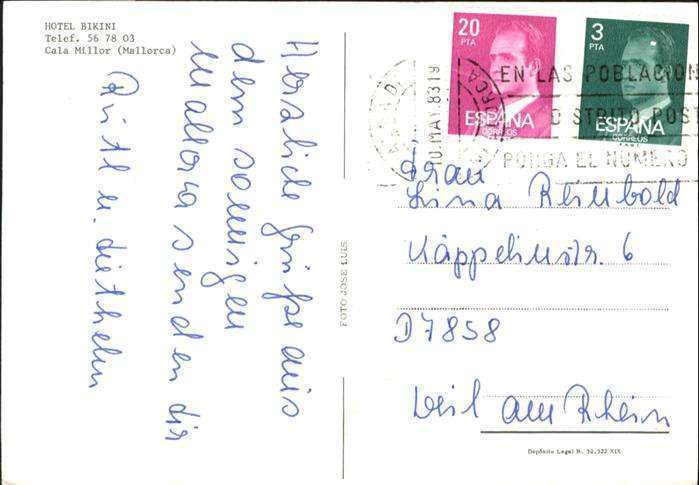 HOTEL BIKINI
Telef. 56 78 03
Cala Millor (Mallorca)
Herzliche Grüße aus
dem sonnigen
Mallorca senden dir
Rütl u. diethelm
FOTO JOSE LUIS
20
PTA
ESPAÑA
CORREOS
3
PTA
ESPAÑA
CORREOS
10.MAY.83 19
EN LAS POBLACION
DISTRITO POST
PONGA EL NUMERO
Frau
Lina Reinbold
Käppelinstr. 6
D7858
Weil am Rhein
Depósito Legal B. 32.322 XIX